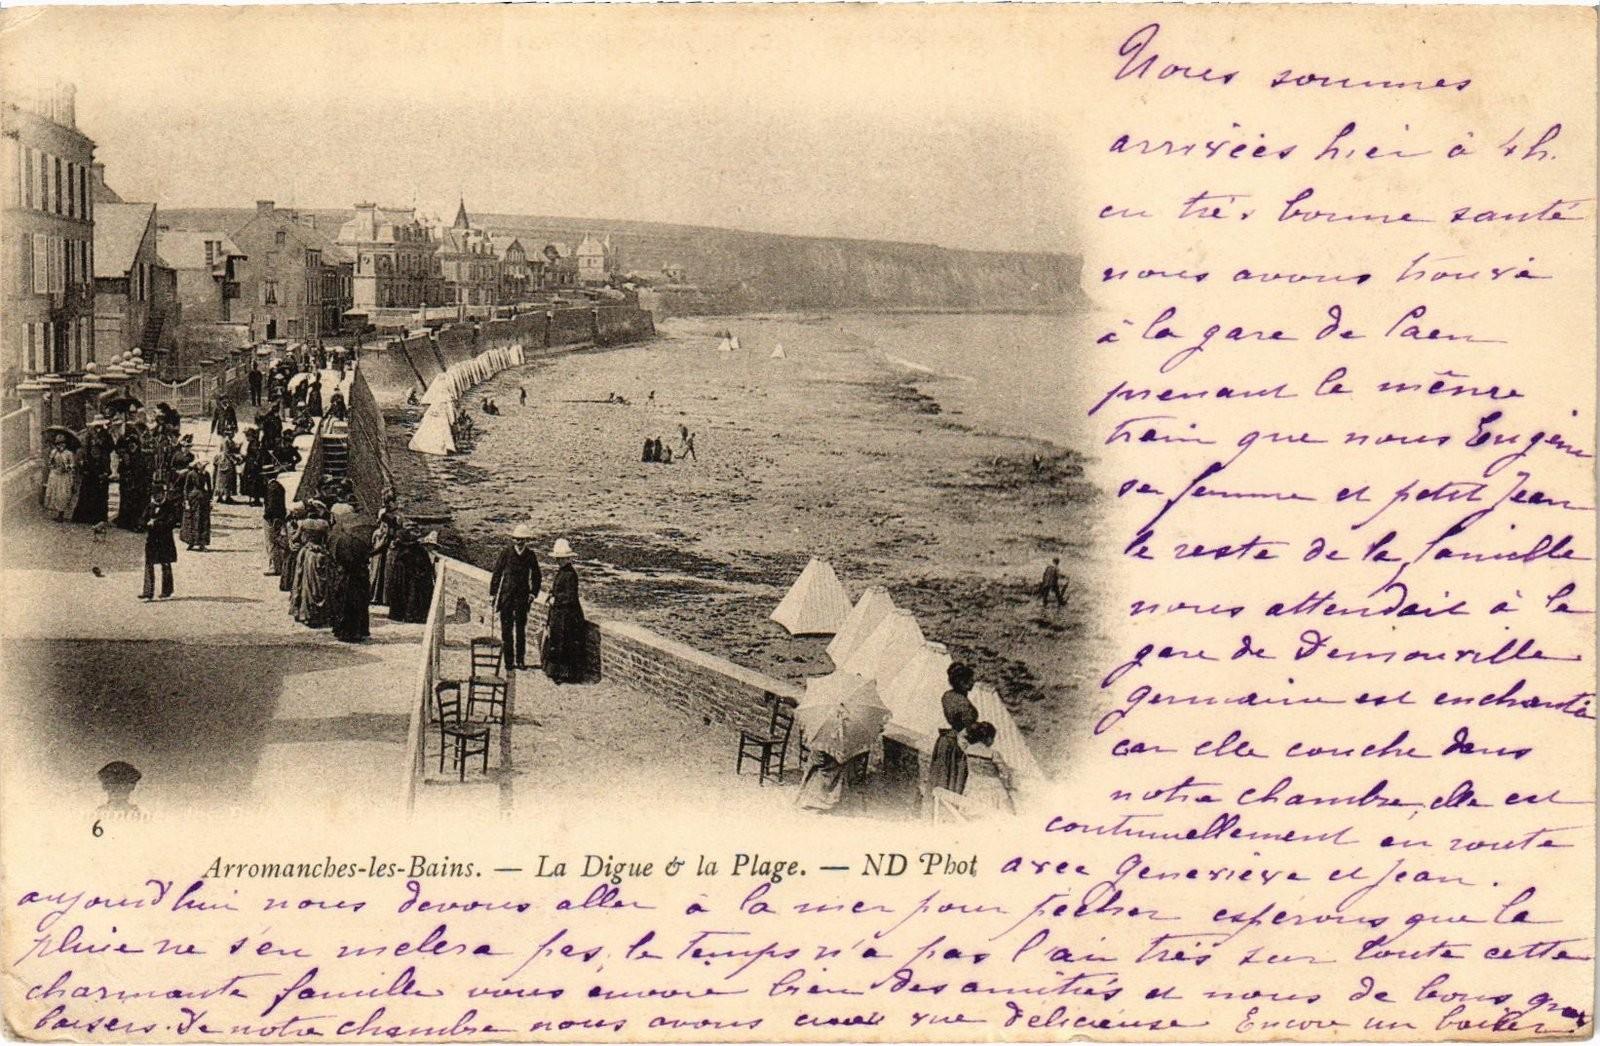 Nous sommes
arrivées hier à 4h.
en très bonne santé
nous avons trouvé
à la gare de Caen
prenant le même
train que nous Eugène
sa femme et petit Jean
le reste de la famille
nous attendait à la
gare de Demouville
germaine est enchantée
car elle couche dans
notre chambre, elle est
continuellement en route
avec Geneviève et Jean.
6
Arromanches-les-Bains. — La Digue & la Plage. — ND Phot
aujourd'hui nous devons aller à la mer pour pêcher espérons que la
pluie ne s'en mêlera pas, le temps n'a pas l'air très sur toute cette
charmante famille vous envoie bien des amitiés et nous de bons gros
baisers. De notre chambre nous avons une vue délicieuse Encore un baiser.